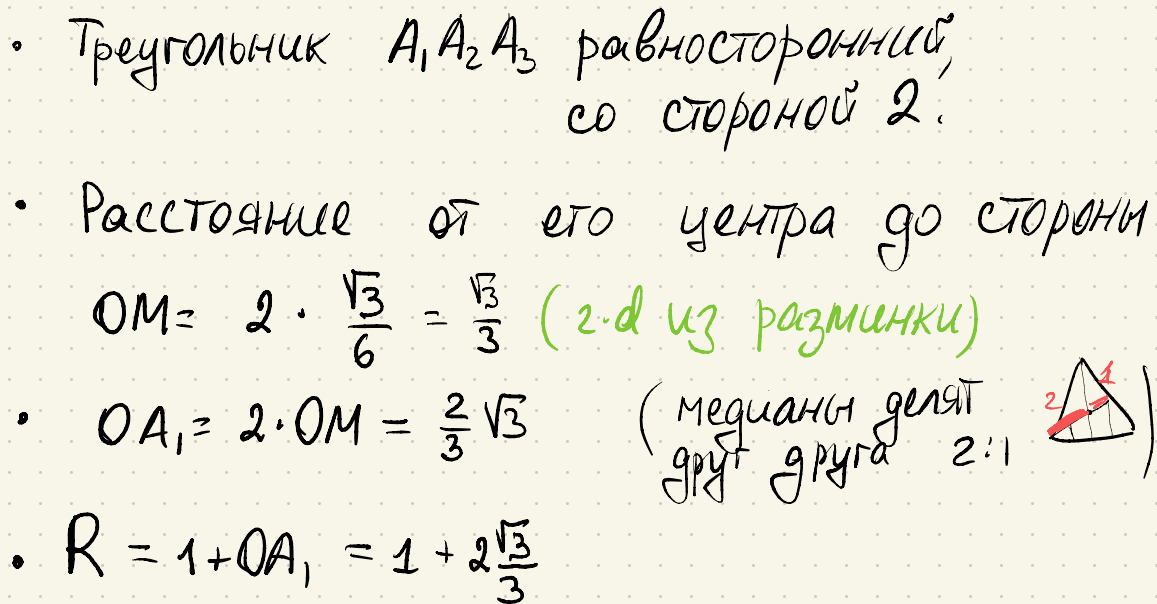 • Треугольник A₁A₂A₃ равносторонний,
со стороной 2.
• Расстояние от его центра до стороны
OM = 2 · √3/6 = √3/3 (2·d из разминки)
• OA₁ = 2·OM = 2/3 √3 (медианы делят
друг друга 2:1)
2 1
• R = 1+OA₁ = 1 + 2√3/3